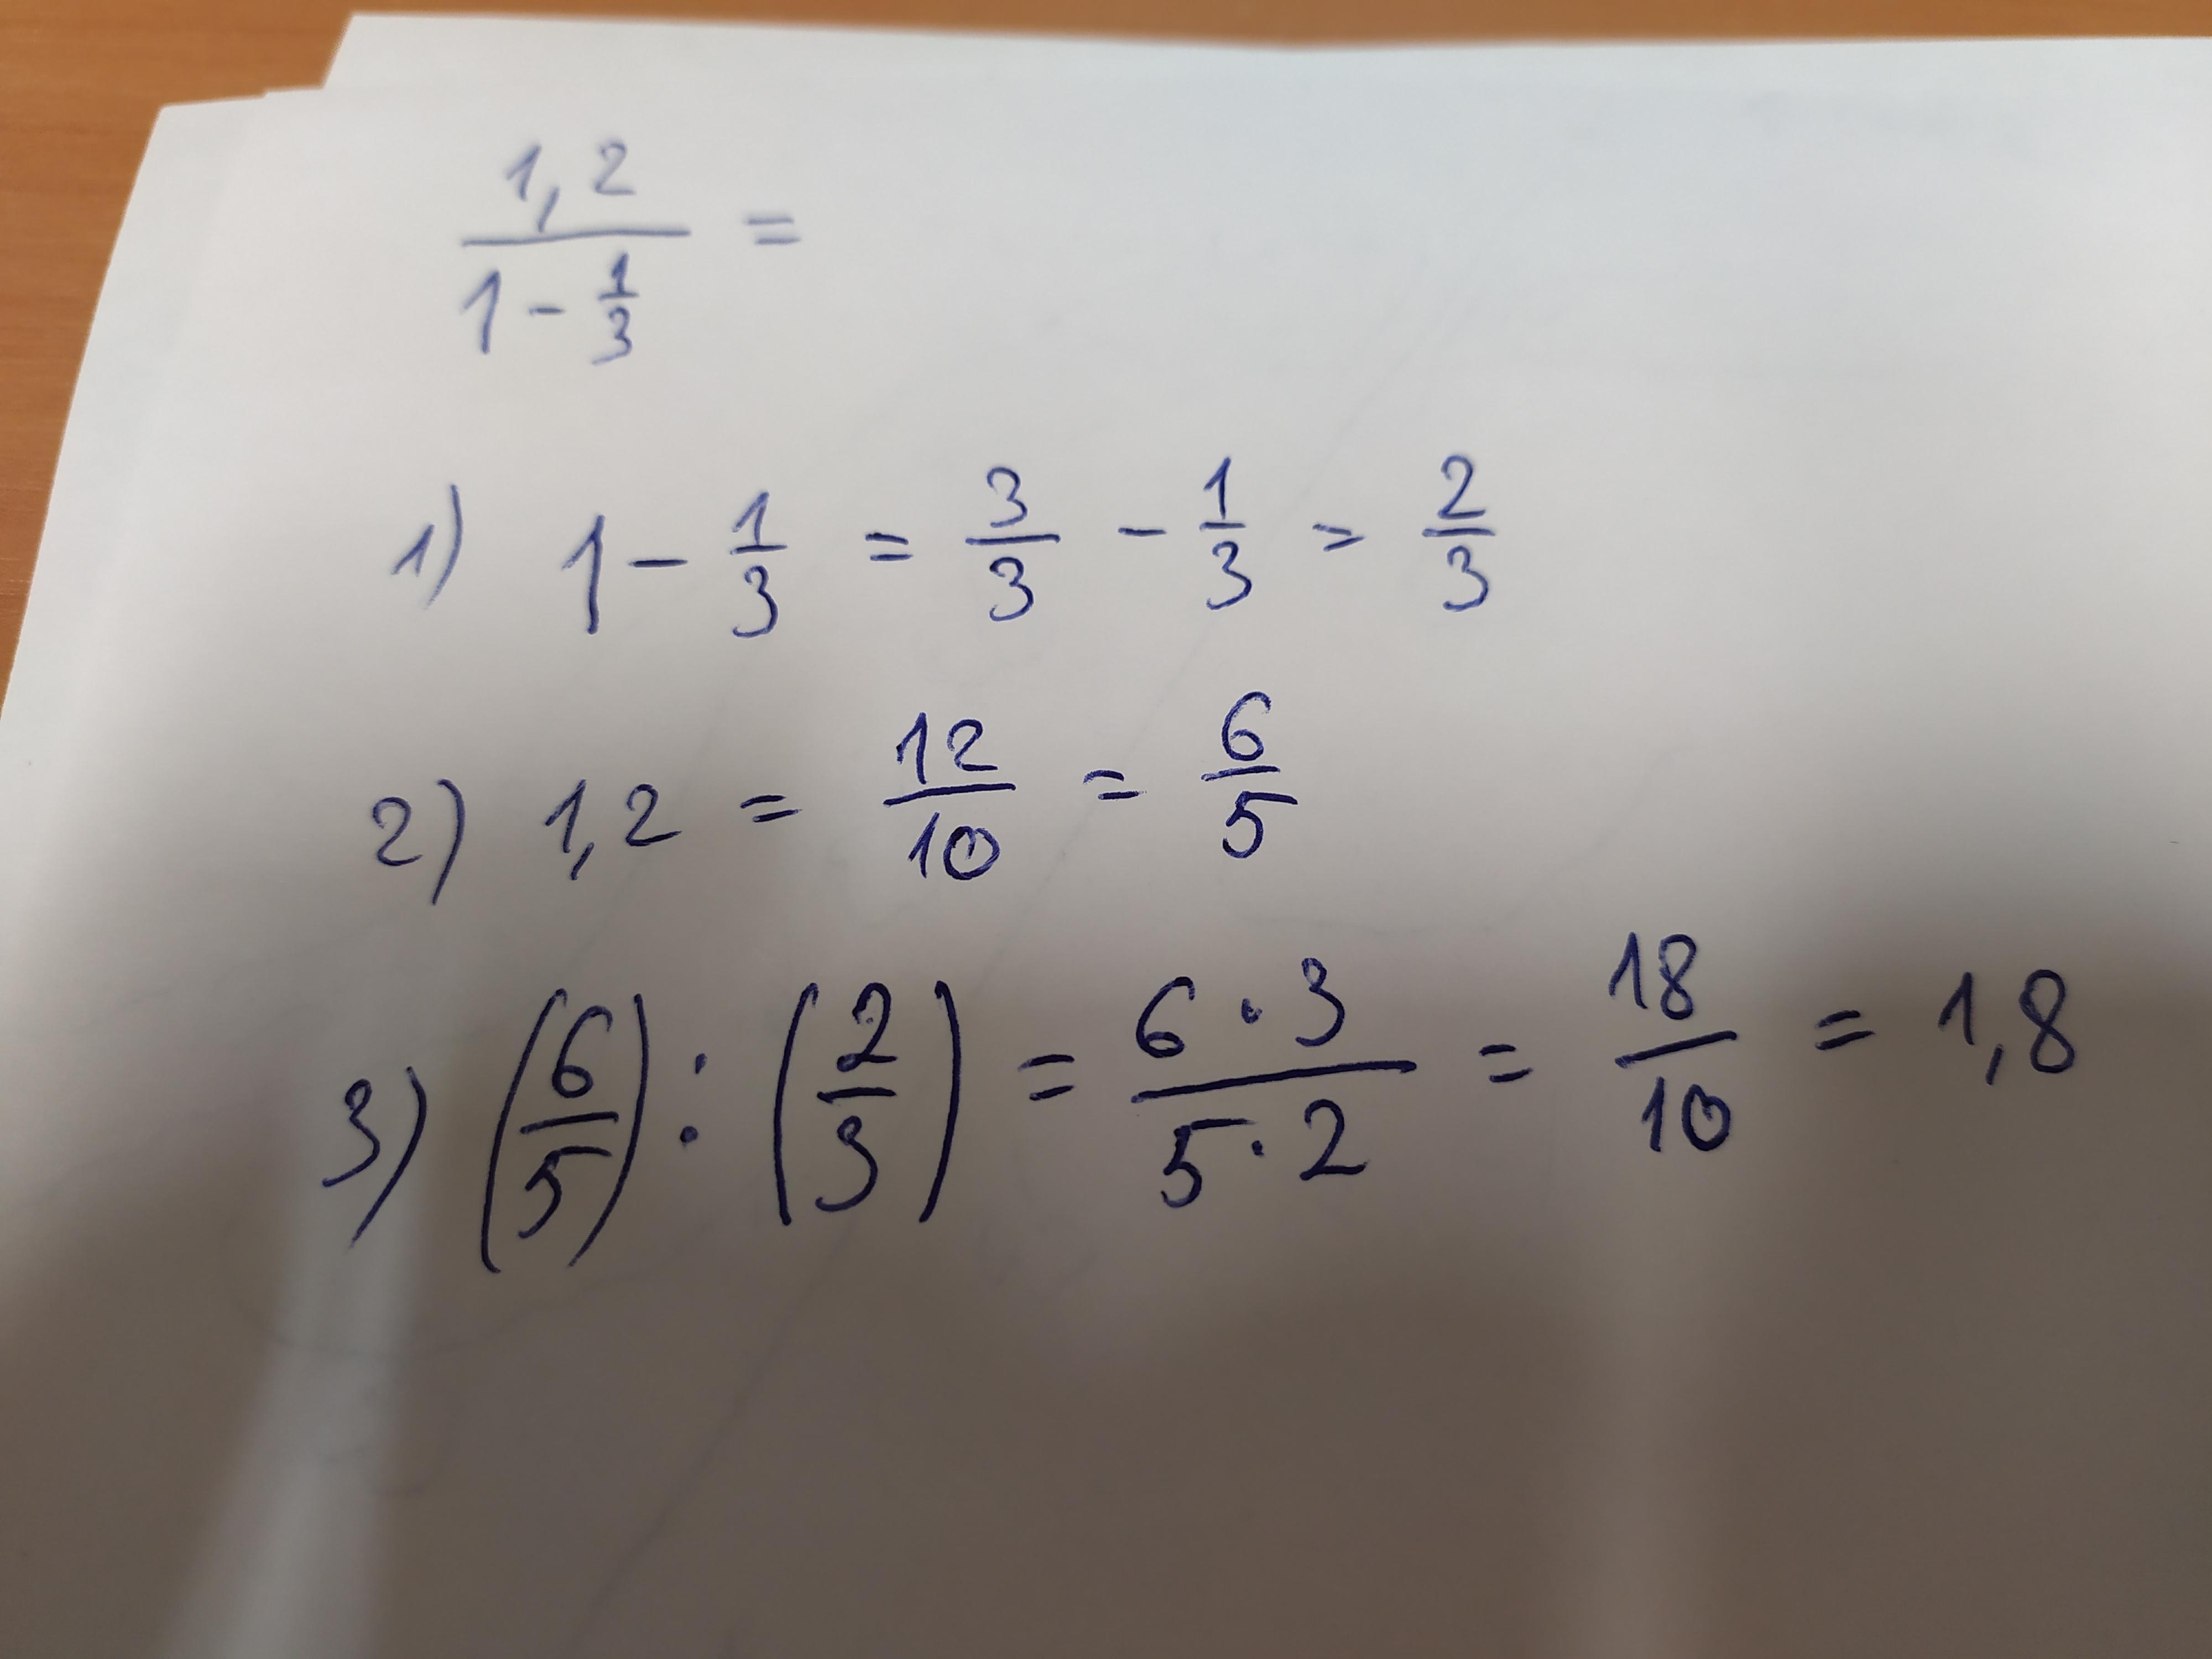 1,2/(1 - 1/3) =
1) 1 - 1/3 = 3/3 - 1/3 = 2/3
2) 1,2 = 12/10 = 6/5
3) (6/5) : (2/3) = (6 · 3)/(5 · 2) = 18/10 = 1,8